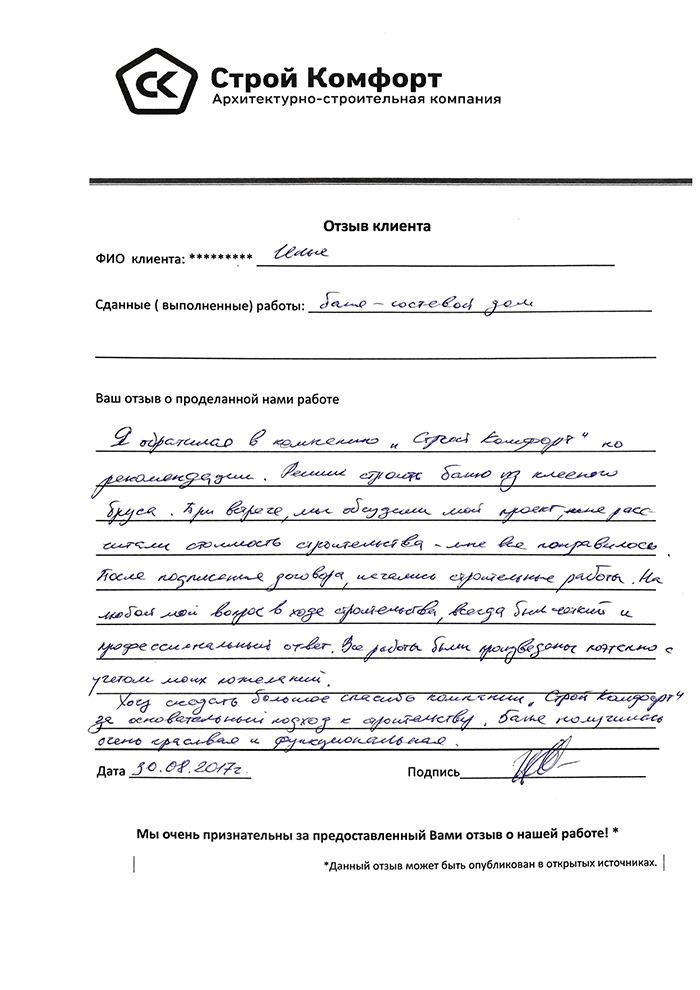 СК
Строй Комфорт
Архитектурно-строительная компания
Отзыв клиента
ФИО клиента: *********
Сданные ( выполненные) работы: баня – гостевой дом
Ваш отзыв о проделанной нами работе
Я обратилась в компанию „Строй Комфорт“ по
рекомендации. Решили строить баню из клееного
бруса. При встрече, мы обсудили мой проект, мне расс-
читали стоимость строительства – мне все понравилось.
После подписания договора, начались строительные работы. На
любой мой вопрос в ходе строительства, всегда был четкий и
профессиональный ответ. Все работы были произведены поэтапно с
учетом моих пожеланий.
Хочу сказать большое спасибо компании „Строй Комфорт“
за основательный подход к строительству. Баня получилась
очень красивая и функциональная.
Дата 30.08.2017г. Подпись
Мы очень признательны за предоставленный Вами отзыв о нашей работе! *
*Данный отзыв может быть опубликован в открытых источниках.